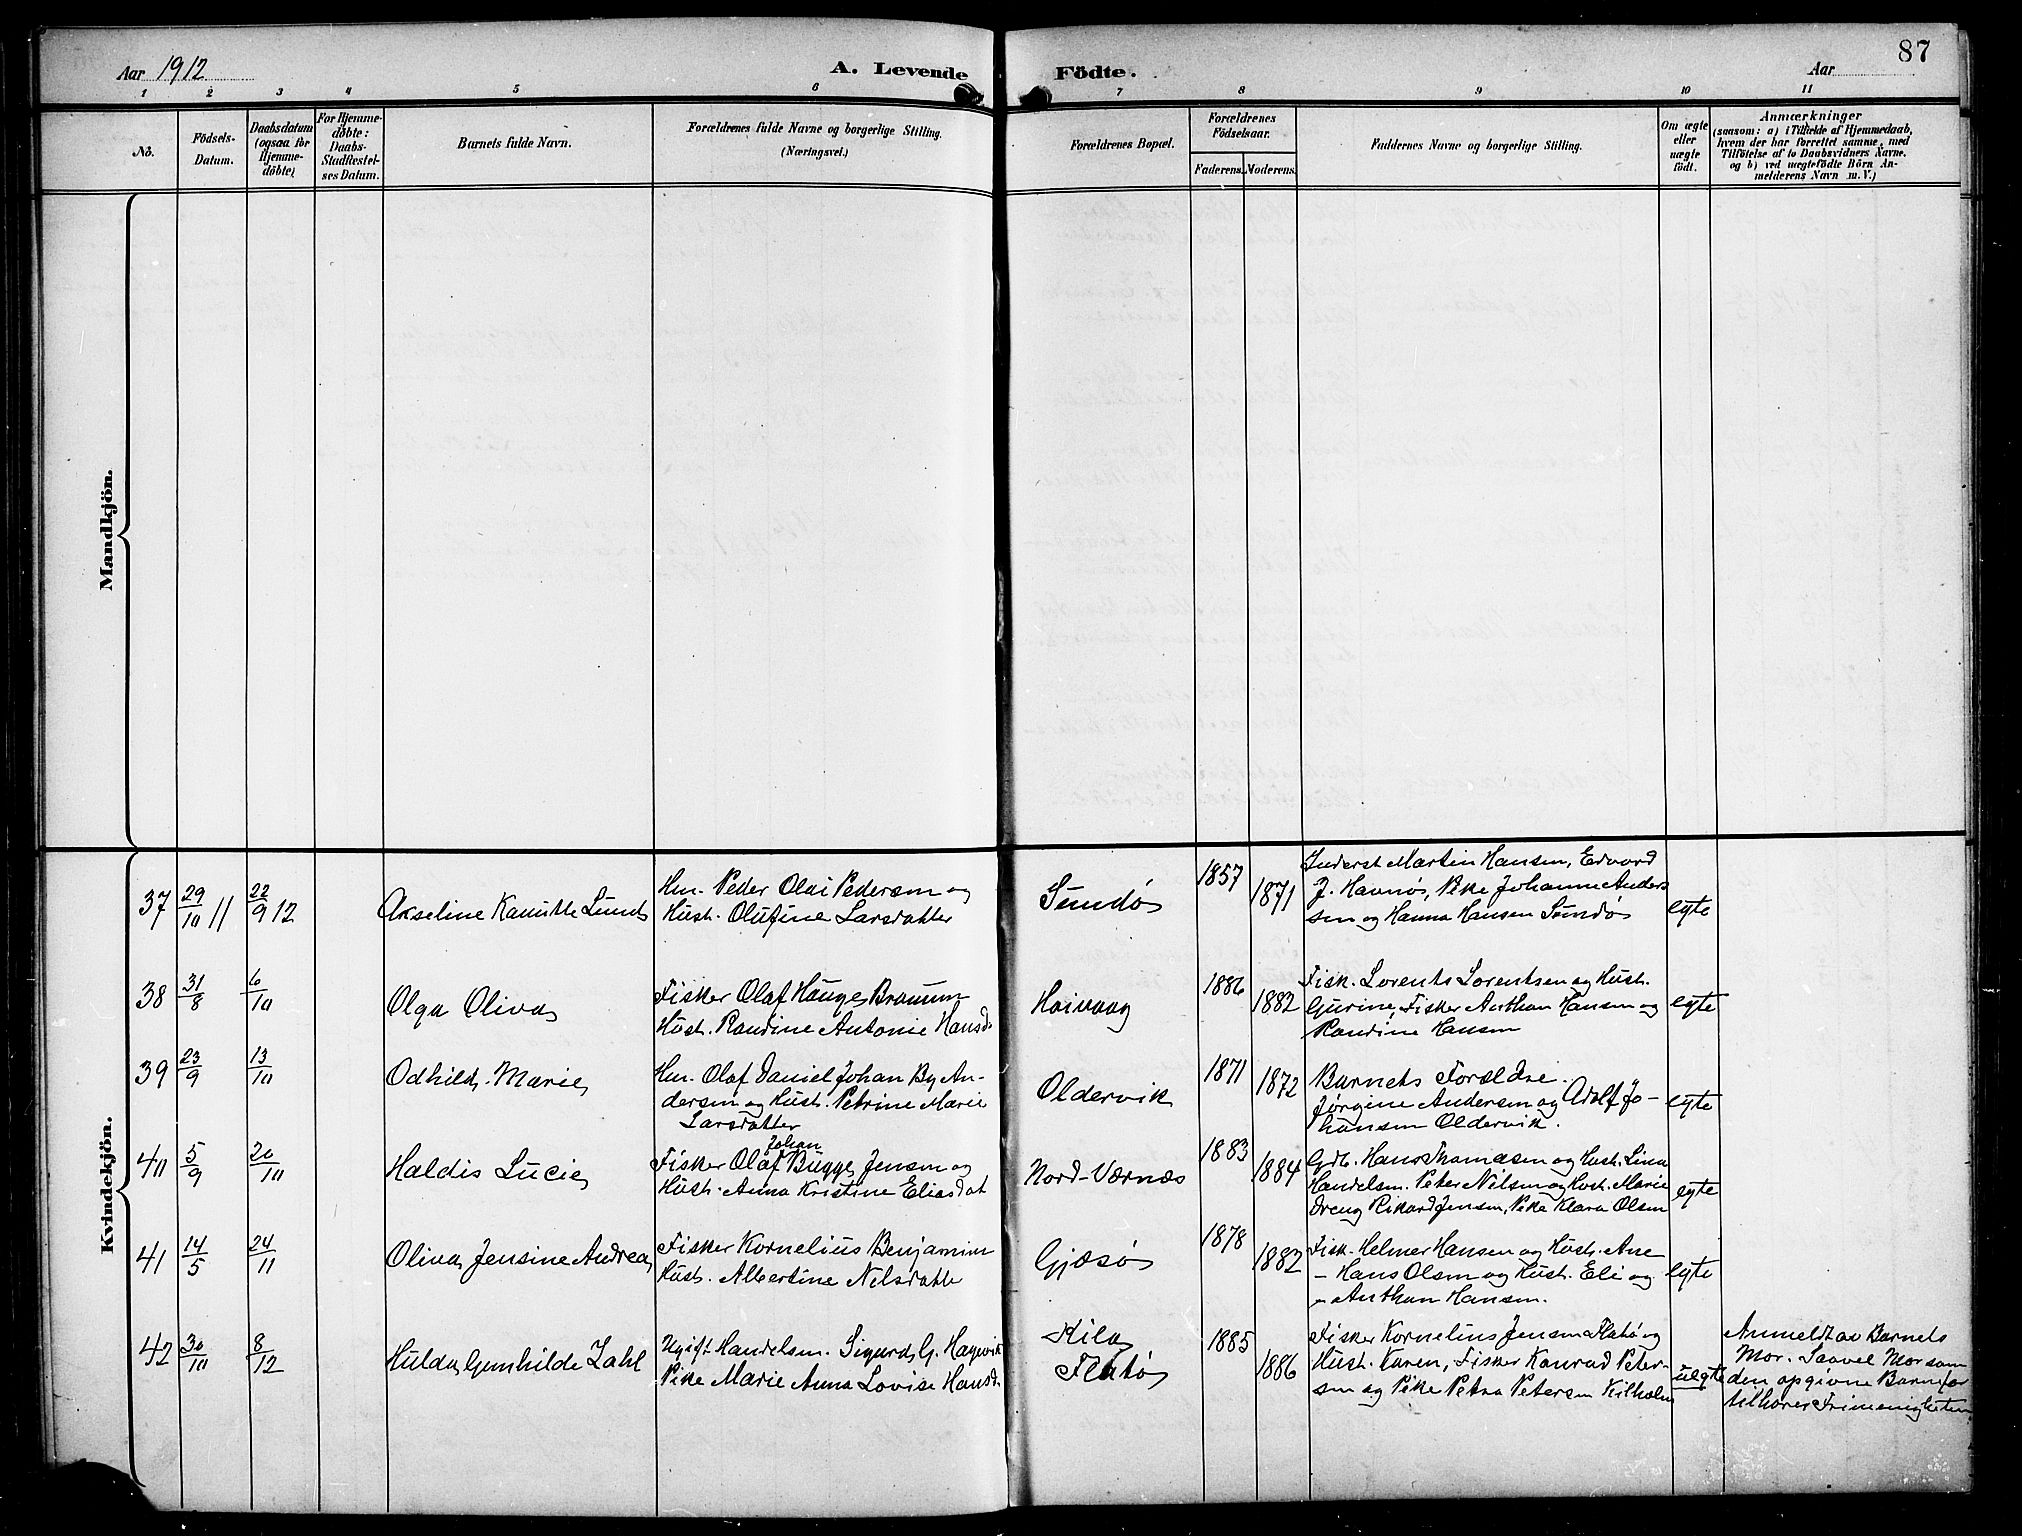 87
Aar 1912
A. Levende
Födte.
Aar
1 2 3 4 5 6 7 8 9 10 11
No.
Födsels-
Datum.
Daabsdatum
(ogsaa for
Hjemme-
döbte)
For Hjemme-
døbte:
Daabs-
Stadfæstel-
ses Datum.
Barnets fulde Navn.
Forældrenes fulde Navne og borgerlige Stilling.
(Næringsvei.)
Forældrenes Bopæl.
Forældrenes
Födselsaar.
Faderens. Moderens.
Faddernes Navne og borgerlige Stilling.
Om ægte
eller
uægte
födt.
Anmærkninger
(saasom: a) i Tilfælde af Hjemmedaab,
hvem der har forrettet samme, med
Tilföielse af to Daabsvidners Navne,
og b) ved uægtefödte Börn An-
melderens Navn m. V.)
Mandkjön.
Kvindekjön.
37 29/10 11 22/9 12
Akseline Kanutte Lund
Hm. Peder Olai Pedersen og
Hust. Olufine Larsdatter
Sundø
1857
1871
Inderst Martin Hansen, Edvard
J. Havnøs, Pike Johanne Anders
sen og Hanna Hansen Sundø
egte
38 31/8 6/10
Olga Oliva
Fisker Olaf Hauge Braunn
Hust. Randine Antonie Hansd.
Hoivaag
1886
1882
Fisk. Lorents Lorentsen og Hust.
Gurine, Fisker Anthon Hansen og
Randine Hansen
egte
39 23/9 13/10
Odhild Marie
Hm. Olaf Daniel Johan By An-
dersen og Hust. Petrine Marie
Larsdatter
Oldervik
1871
1872
Barnets Forældre.
Jørgine Andersen og Adolf Jo-
hansen Oldervik.
egte
40 5/9 20/10
Haldis Lucie
Johan
Fisker Olaf Bugge Jensen og
Hust. Anna Kristine Eliasdat
Nord-Værnæs
1883
1884
Gdb. Hans Thomasen og Hust. Lina
Handelsm. Peter Nilsen og Hust. Marie
Dreng Rikard Jensen, Pike Klara Olsen
egte
41 14/5 24/11
Oliva Jensine Andrea
Fisker Kornelius Benjamin
Hust. Albertine Nilsdatte
Gjæsø
1878
1882
Fisk. Helmer Hansen og Hust. Ane
- Hans Olsen og Hust. Eli og
- Anthon Hansen.
egte
42 30/10 8/12
Hulda Gunhilde Zahl
Ugift Handelsm. Sigurd G. Hagevik
Pike Marie Anna Lovise Hansd.
Kila
Flatø
1885
1886
Fisker Kornelius Jensen Flatø og
Hust. Karen, Fisker Konrad Peter-
sen og Pike Petra Petersen Kilholm
uegte
Anmeldt av Barnets
Mor. Saavel Mor som
den opgivne Barnefar
tilhører Frimenigheten